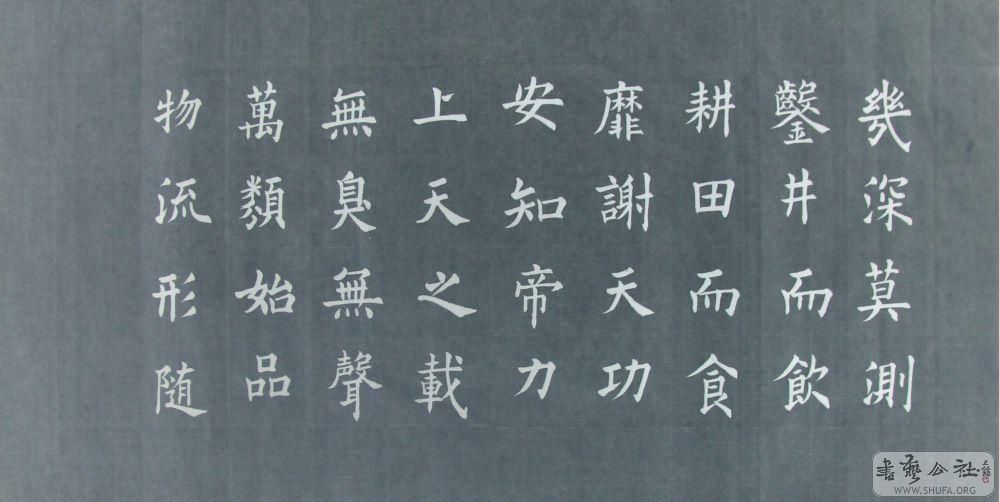 幾深莫測
鑿井而飲
耕田而食
靡謝天功
安知帝力
上天之載
無臭無聲
萬類始品
物流形随
書藝公社
WWW.SHUFA.ORG